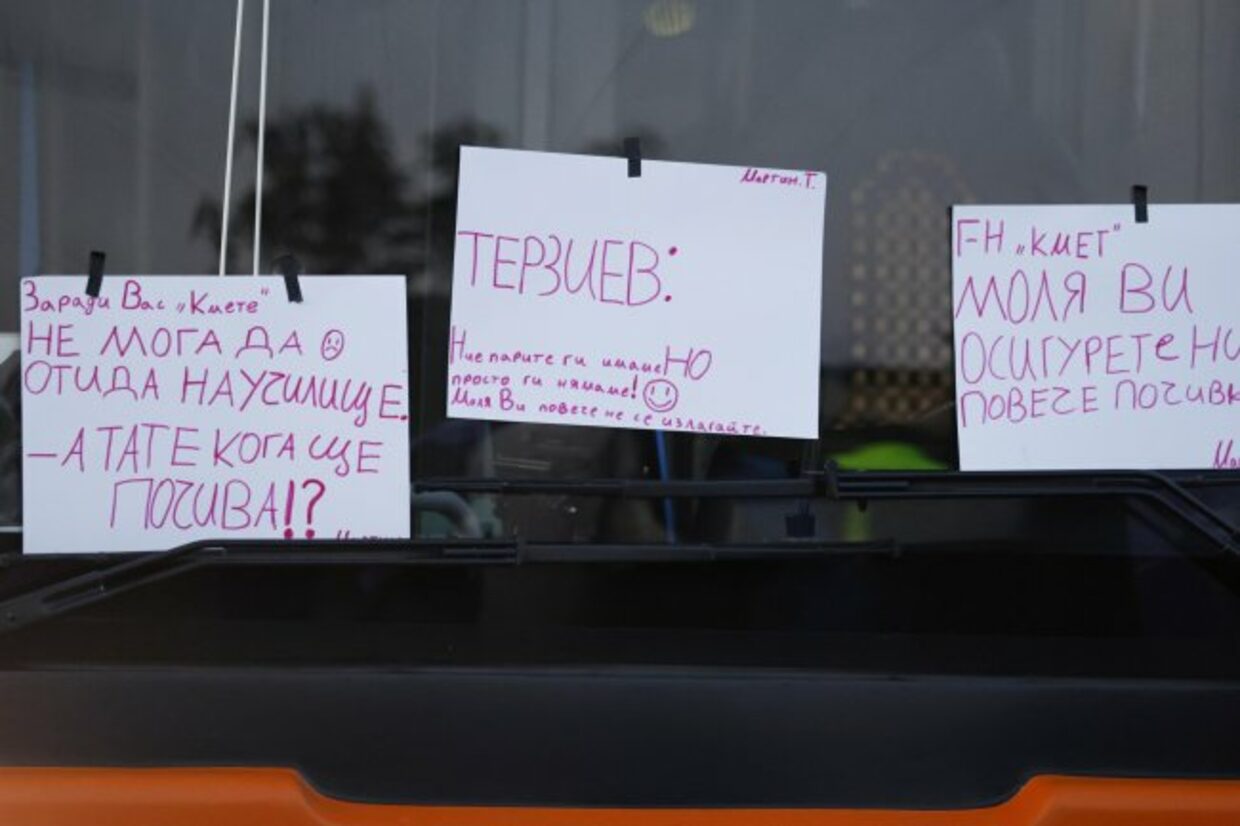 Заради Вас „Кмете"
НЕ МОГА ДА
ОТИДА НА УЧИЛИЩЕ.
– А ТАТЕ КОГА ЩЕ
ПОЧИВА!?
Мартин. Т.
ТЕРЗИЕВ:
Ние парите ги имаме НО
просто ги нямаме!
Моля Ви повече не се излагайте.
Г-Н „КМЕТ"
МОЛЯ ВИ
ОСИГУРЕТЕ НИ
ПОВЕЧЕ